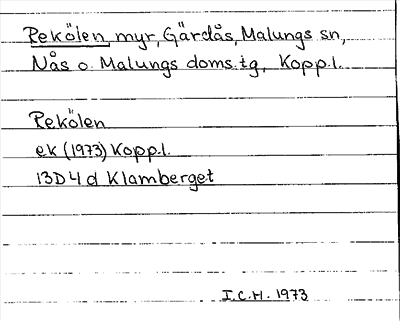 Rekölen, myr, Gärdås, Malungs sn,
Nås o. Malungs doms.tg, Kopp.l.
Rekölen
ek (1973) Kopp.l.
13D4d Klamberget
I.C.H. 1973